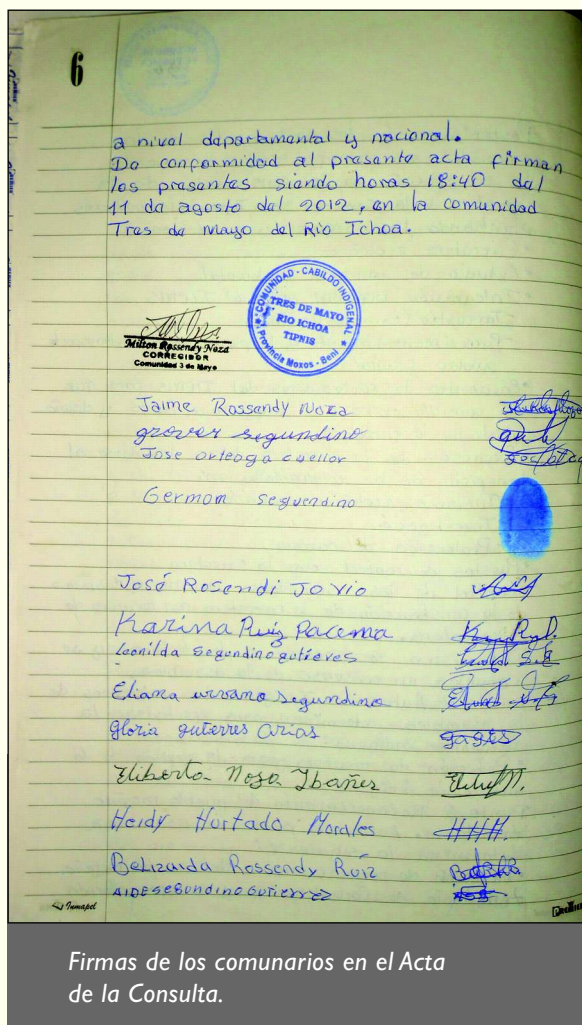 6
a nivel departamental y nacional.
De conformidad al presente acta firman
los presentes siendo horas 18:40 del
11 de agosto del 2012, en la comunidad
Tres de Mayo del Rio Ichoa.
COMUNIDAD - CABILDO INDIGENAL
TRES DE MAYO
RIO ICHOA
TIPNIS
Provincia Moxos - Beni
Milton Rossendy Noza
CORREGIDOR
Comunidad 3 de Mayo
Jaime Rossendy Noza
grover segundino
Jose orteaga cuellar
Germom seguendino
José Rosendi Jo Vio
Karina Ruiz Pacema
Leonilda segundino gutieves
Eliana urvano segundino
Gloria guterres Arias
Eliberta Noza Ybañes
Heidy Hurtado Morales
HHH.
Belizaida Rossendy Ruiz
AIDESEGUNDINOGUTIERREZ
Inmapel
Firmas de los comunarios en el Acta
de la Consulta.